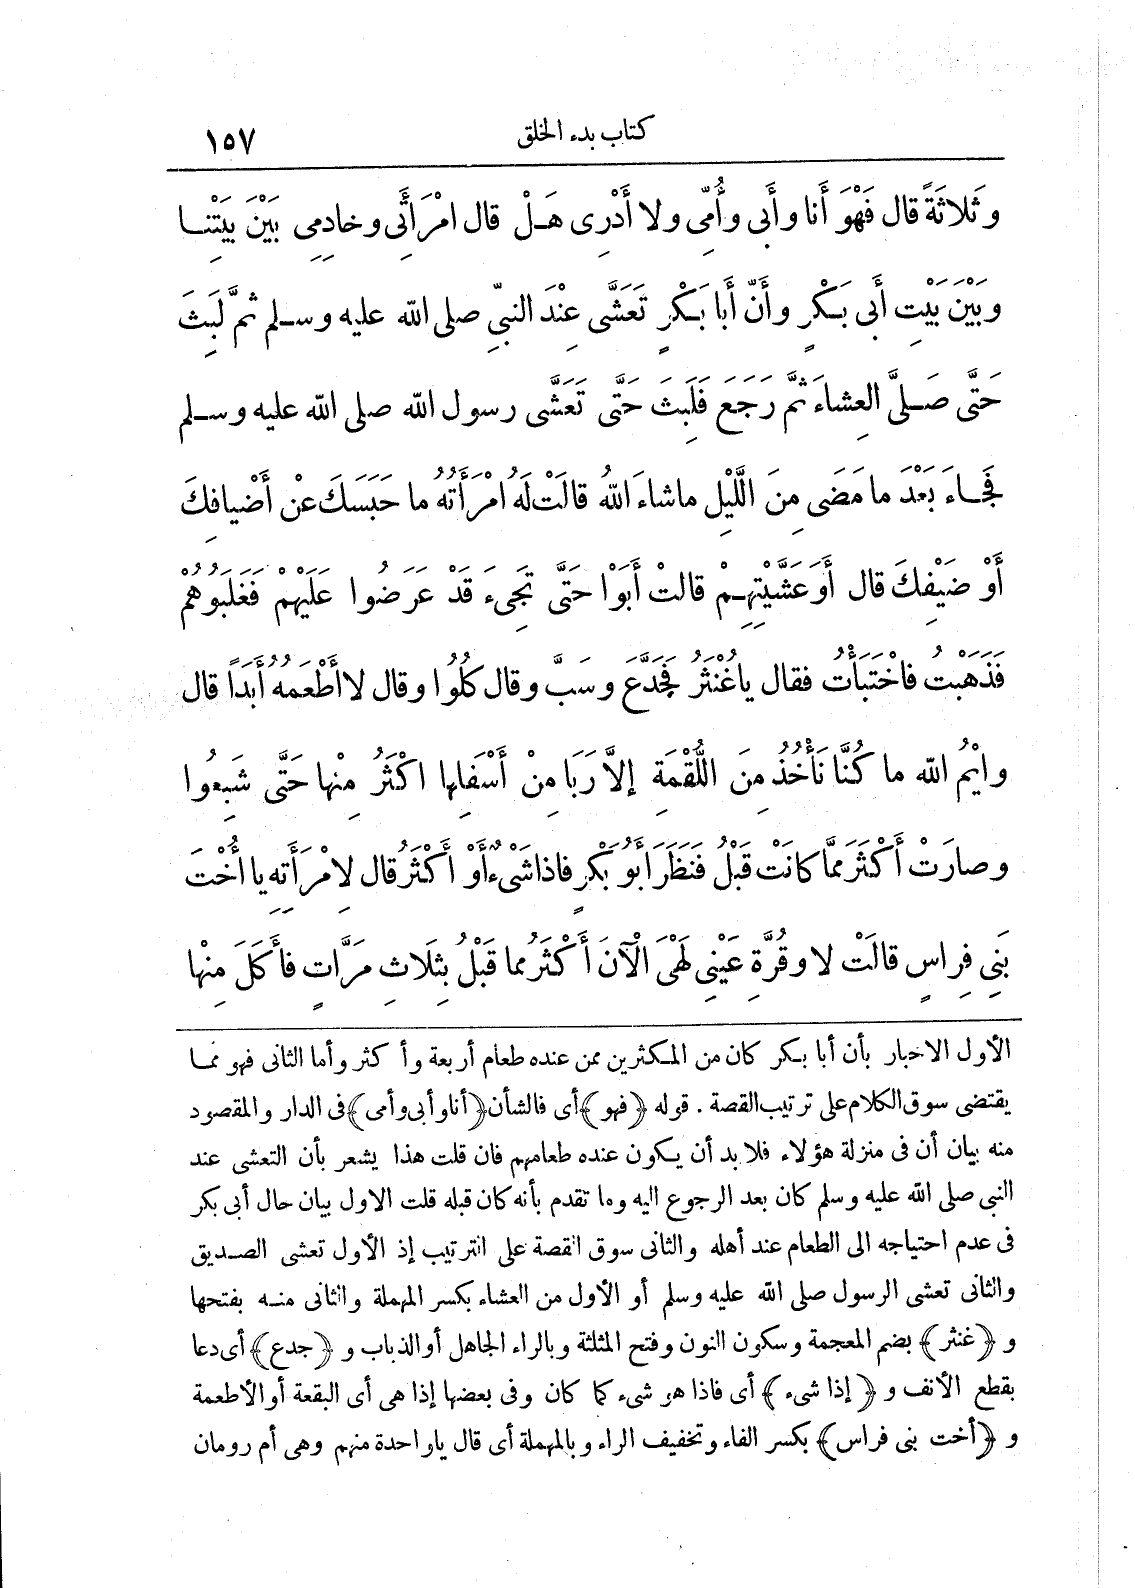 كتاب بدء الخلق
١٥٧
وثَلاثَةً قال فَهْوَ أَنا وأَبِى وأُمِّى ولا أَدْرِى هَلْ قال امْرَأَتِى وخادِمِى بَيْنَ بَيْتِنا
وبَيْنَ بَيْتِ أَبِى بَكْرٍ وأَنَّ أَبا بَكْرٍ تَعَشَّى عِنْدَ النبيِّ صلى الله عليه وسلم ثمَّ لَبِثَ
حَتَّى صَلَّى العِشاءَ ثمَّ رَجَعَ فَلَبِثَ حَتَّى تَعَشَّى رسول الله صلى الله عليه وسلم
فَجاءَ بَعْدَ ما مَضَى مِنَ اللَّيْلِ ماشاءَ اللهُ قالَتْ لَهُ امْرَأَتُهُ ما حَبَسَكَ عنْ أَضْيافِكَ
أَوْ ضَيْفِكَ قال أَوَعَشَّيْتِهِمْ قالتْ أَبَوْا حَتَّى تَجِىءَ قَدْ عَرَضُوا عَلَيْهِمْ فَغَلَبُوهُمْ
فَذَهَبْتُ فاخْتَبَأْتُ فقال ياغُنْثَرُ فَجَدَّعَ وسَبَّ وقال كُلُوا وقال لاأَطْعَمُهُ أَبَداً قال
وايْمُ الله ما كُنَّا نَأْخُذُ مِنَ اللُّقْمَةِ إلاَّ رَبَا مِنْ أَسْفَلِها اكْثَرُ مِنْها حَتَّى شَبِعُوا
وصارَتْ أَكْثَرَ مِمَّا كانَتْ قَبْلُ فَنَظَرَ أَبُو بَكْرٍ فاذا شَىْءٌ أَوْ أَكْثَرُ قال لِامْرَأَتِهِ يا أُخْتَ
بَنِى فِراسٍ قالَتْ لا وقُرَّةِ عَيْنِى لَهْىَ الْآنَ أَكْثَرُ مما قَبْلُ بِثَلَاثِ مَرَّاتٍ فأَكَلَ مِنْها
الأول الاخبار بأن أبا بكر كان من المكثرين ممن عنده طعام أربعة وأكثر وأما الثانى فهو مما
يقتضى سوق الكلام على ترتيب القصة . قوله ﴿فهو﴾ أى فالشأن ﴿أنا وأبى وأمى﴾ فى الدار والمقصود
منه بيان أن فى منزلة هؤلاء فلا بد أن يكون عنده طعامهم فان قلت هذا يشعر بأن التعشى عند
النبي صلى الله عليه وسلم كان بعد الرجوع اليه وما تقدم بأنه كان قبله قلت الاول بيان حال أبى بكر
فى عدم احتياجه الى الطعام عند أهله والثانى سوق القصة على الترتيب إذ الأول تعشى الصديق
والثانى تعشى الرسول صلى الله عليه وسلم أو الأول من العشاء بكسر المهملة والثانى منه بفتحها
و﴿غنثر﴾ بضم المعجمة وسكون النون وفتح المثلثة وبالراء الجاهل أو الذباب و﴿جدع﴾ أى دعا
بقطع الأنف و﴿إذا شىء﴾ أى فاذا هو شىء كما كان وفى بعضها إذا هى أى البقعة أو الأطعمة
و﴿أخت بنى فراس﴾ بكسر الفاء وتخفيف الراء وبالمهملة أى قال ياواحدة منهم وهى أم رومان